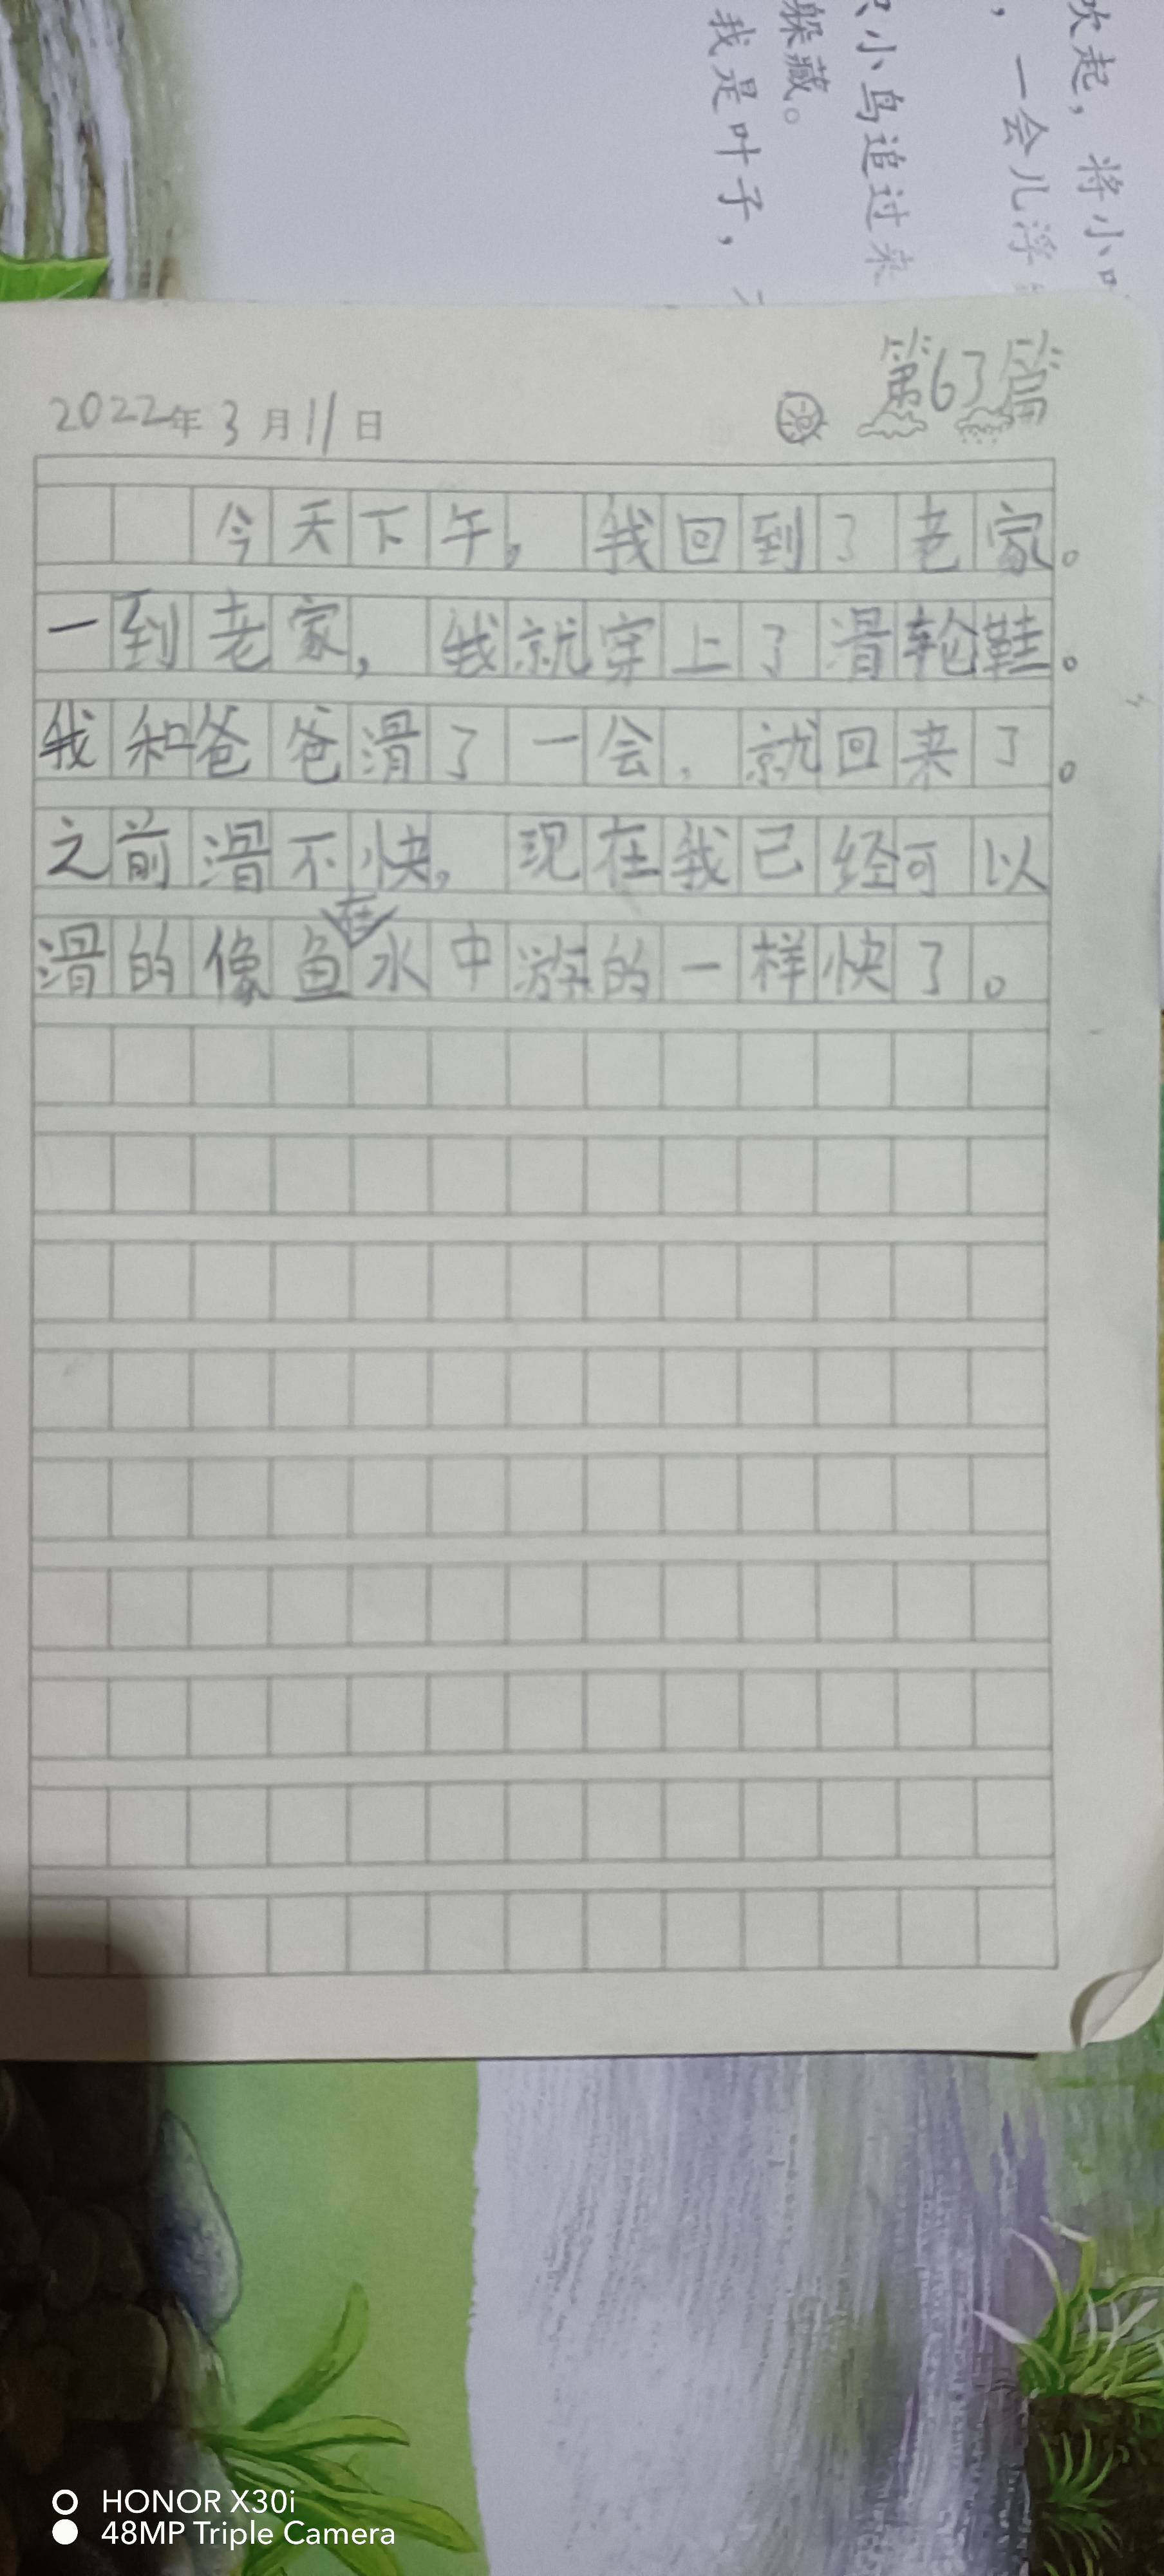 吹起，将小叶
，一会儿浮
只小鸟追过来
躲藏。
我是叶子，
第63篇
2022年3月11日
今天下午，我回到了老家。
一到老家，我就穿上了滑轮鞋。
我和爸爸滑了一会，就回来了。
之前滑不快，现在我已经可以
滑的像鱼在水中游的一样快了。
HONOR X30i
48MP Triple Camera